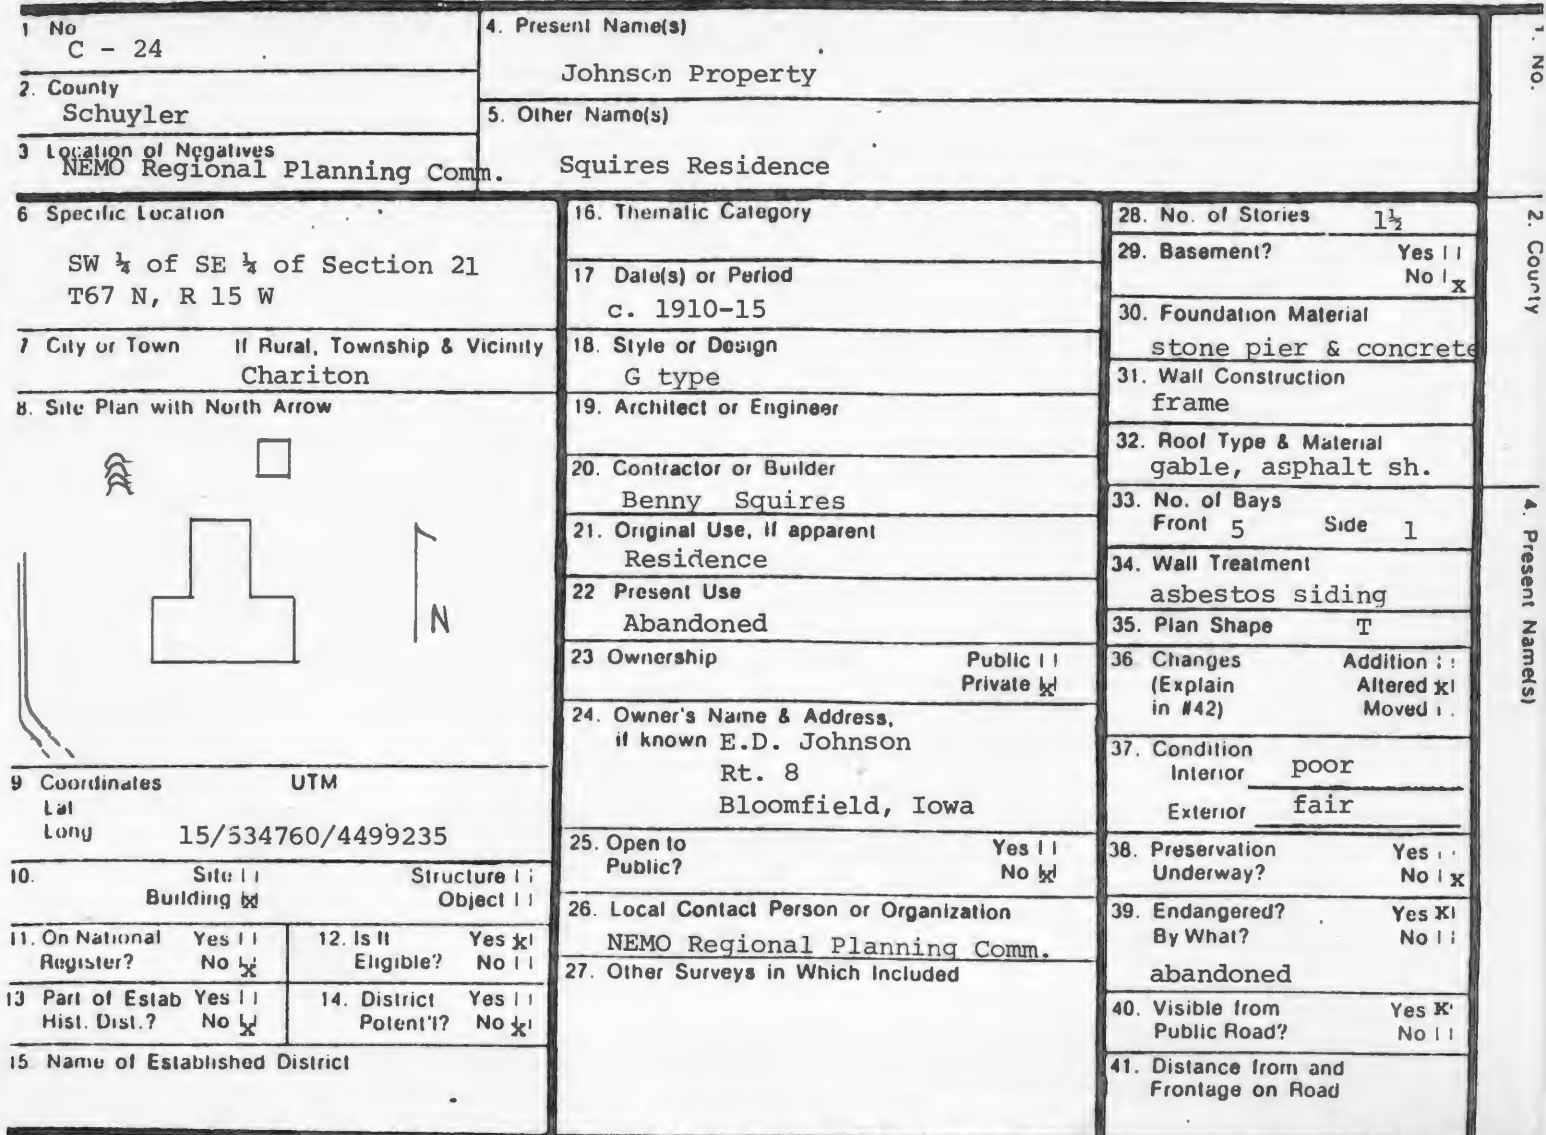 1 No
C - 24
2. County
Schuyler
3 Location of Negatives
NEMO Regional Planning Comm.
4. Present Name(s)
Johnson Property
5. Other Name(s)
Squires Residence
6 Specific Location
SW ¼ of SE ¼ of Section 21
T67 N, R 15 W
7 City or Town If Rural, Township & Vicinity
Chariton
8. Site Plan with North Arrow
N
9 Coordinates UTM
Lat
Long 15/534760/4499235
10. Site Structure
Building x Object
11. On National Yes
Register? No x
12. Is It Yes x
Eligible? No
13 Part of Estab Yes
Hist. Dist.? No x
14. District Yes
Potent'l? No x
15. Name of Established District
16. Thematic Category
17 Date(s) or Period
c. 1910-15
18. Style or Design
G type
19. Architect or Engineer
20. Contractor or Builder
Benny Squires
21. Original Use, if apparent
Residence
22 Present Use
Abandoned
23 Ownership Public
Private x
24. Owner's Name & Address,
if known E.D. Johnson
Rt. 8
Bloomfield, Iowa
25. Open to Yes
Public? No x
26. Local Contact Person or Organization
NEMO Regional Planning Comm.
27. Other Surveys in Which Included
28. No. of Stories 1½
29. Basement? Yes
No x
30. Foundation Material
stone pier & concrete
31. Wall Construction
frame
32. Roof Type & Material
gable, asphalt sh.
33. No. of Bays
Front 5 Side 1
34. Wall Treatment
asbestos siding
35. Plan Shape T
36. Changes Addition
(Explain Altered x
in #42) Moved
37. Condition
Interior poor
Exterior fair
38. Preservation Yes
Underway? No x
39. Endangered? Yes X
By What? No
abandoned
40. Visible from Yes X
Public Road? No
41. Distance from and
Frontage on Road
1. No.
2. County
4. Present Name(s)